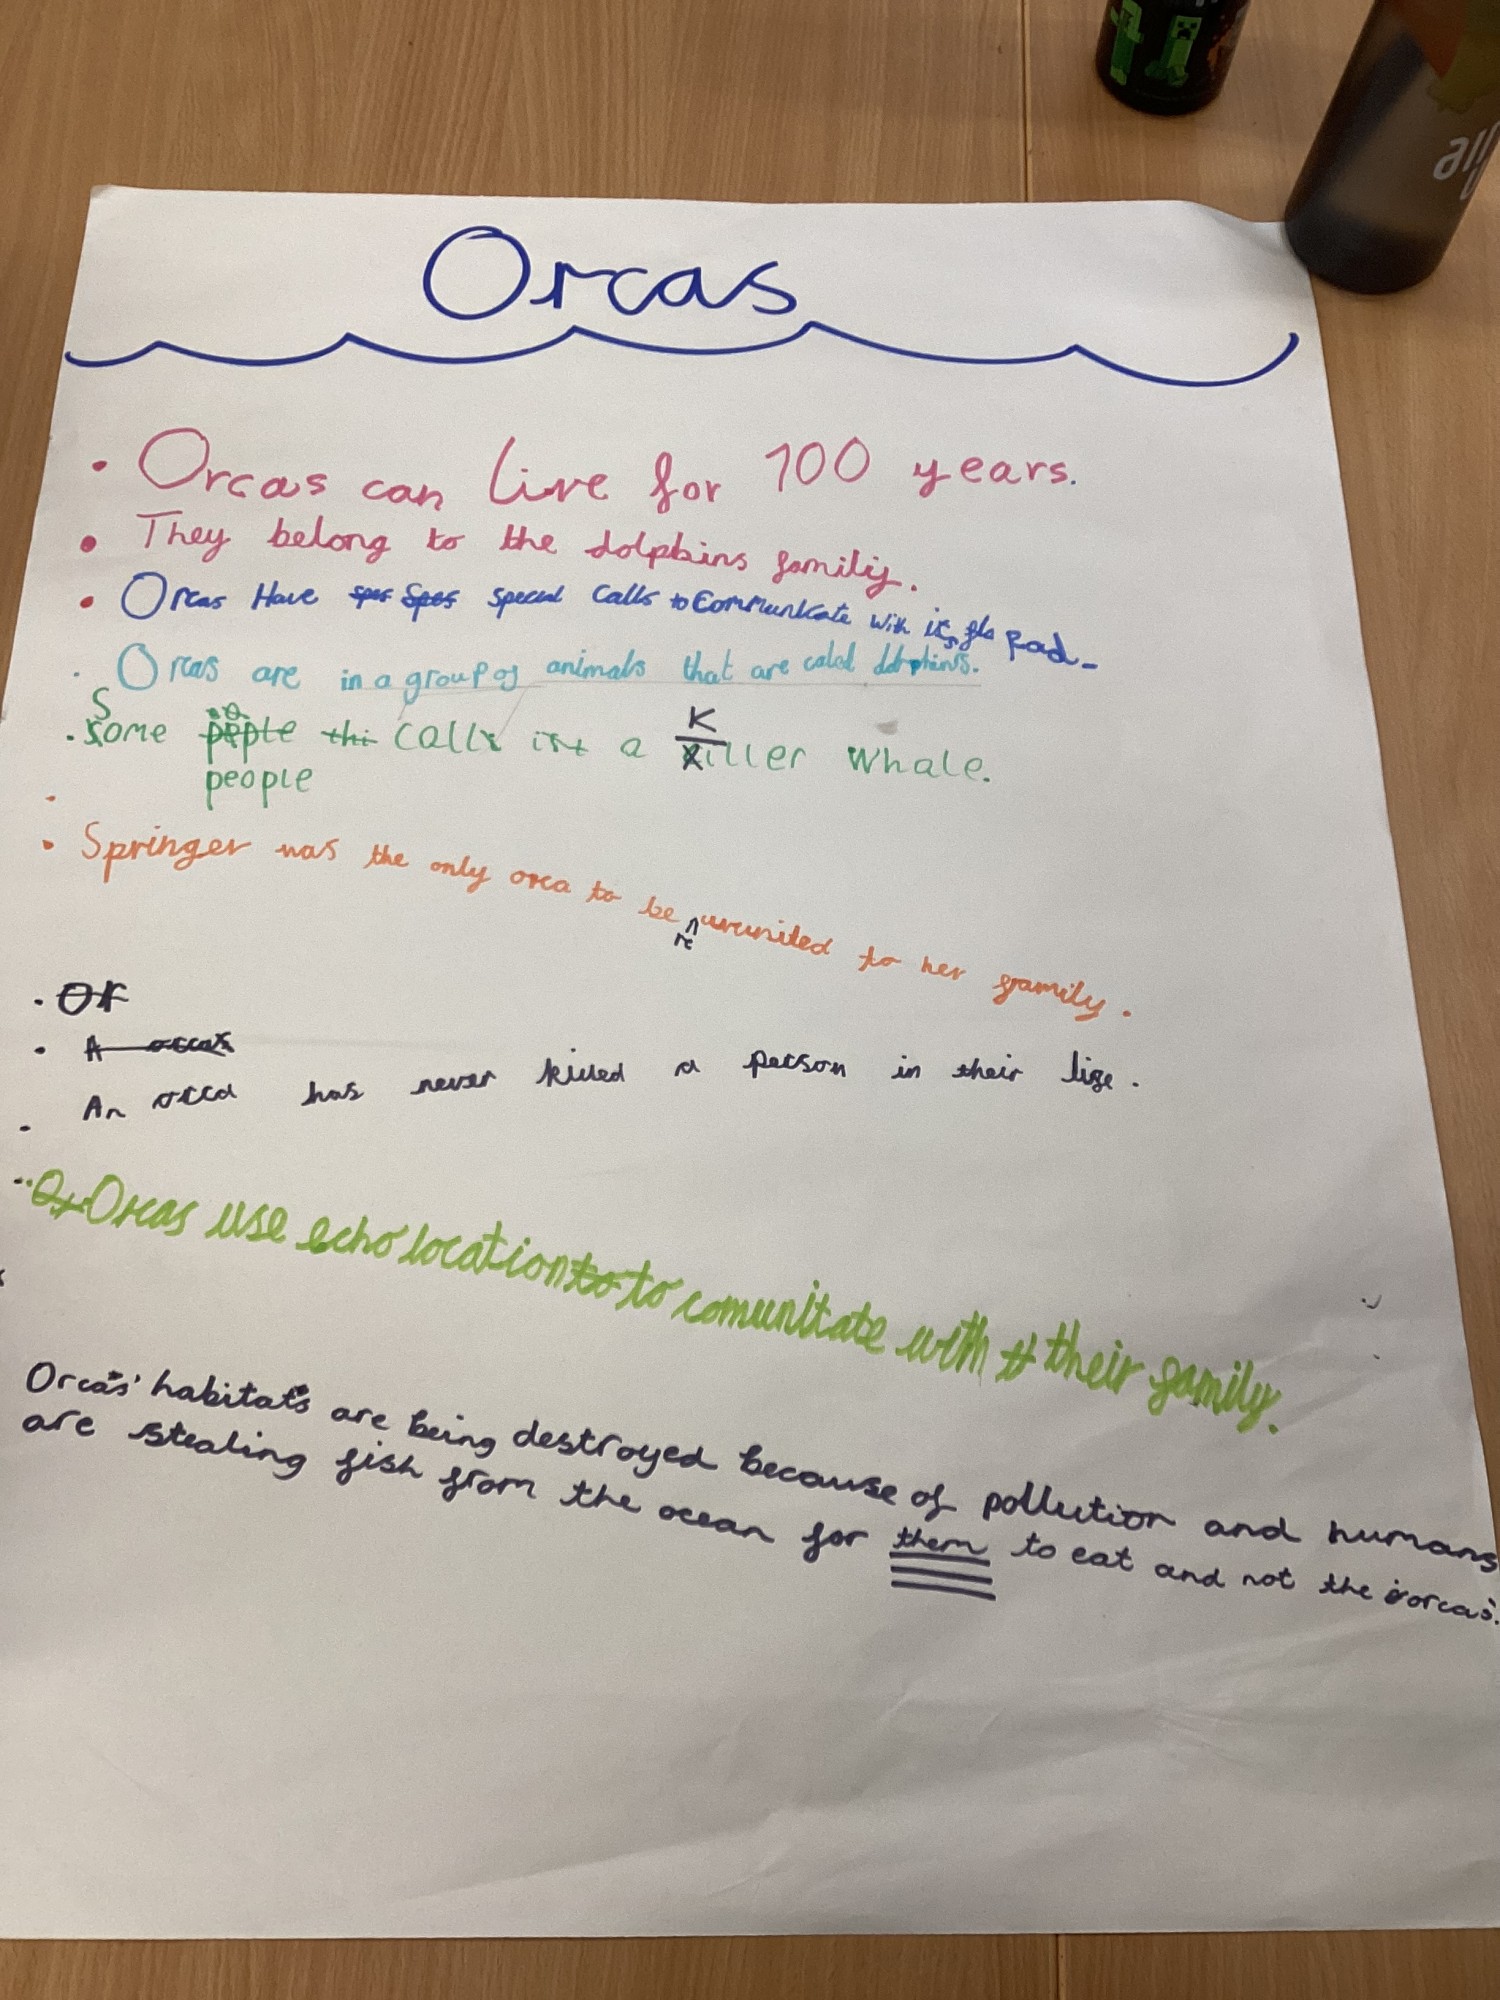 Orcas
• Orcas can live for 100 years.
• They belong to the dolphins family.
• Orcas Have spes Spes special calls to communicate with its pod.
• Orcas are in a group of animals that are caled dolphins.
• Some people thi calls it a Killer whale.
people
• Springer was the only orca to be reunited to her family.
• Or
• A orcas
An orca has never killed a person in their life.
Or Orcas use echolocation to to comunitate with their family.
Orcas' habitats are being destroyed because of pollution and humans
are stealing fish from the ocean for them to eat and not the orcas.